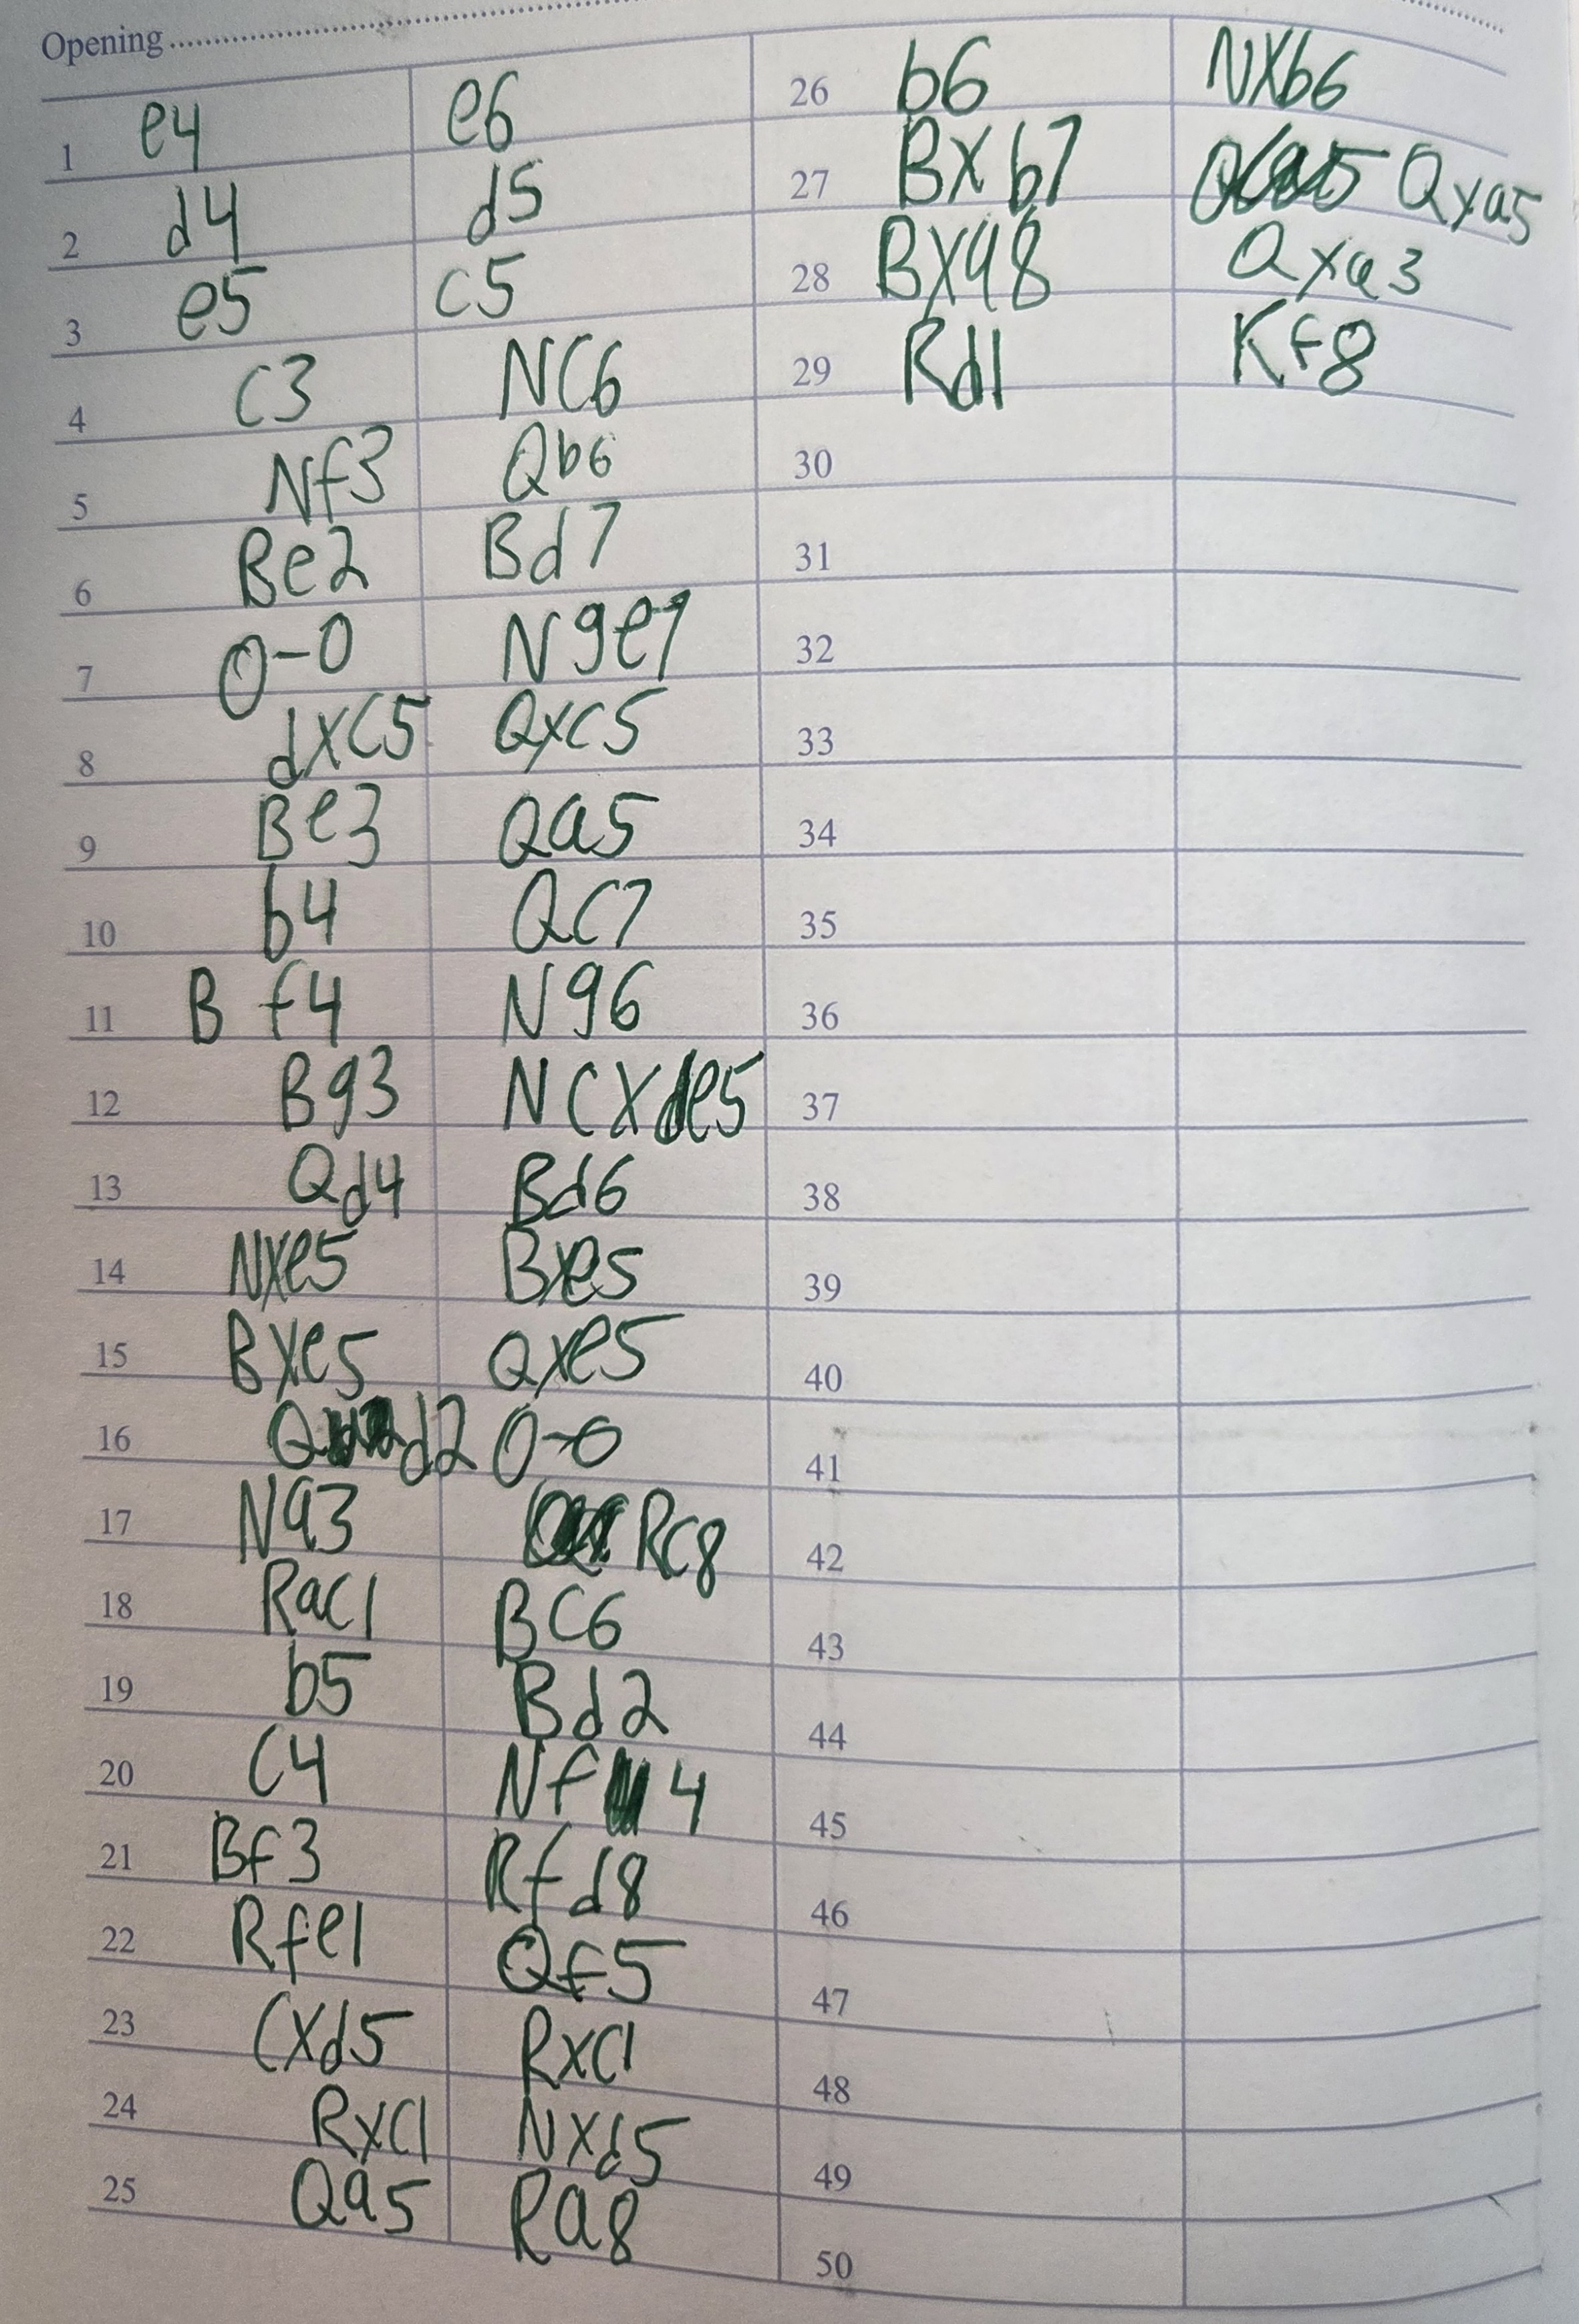 Opening
1 e4 e6
2 d4 d5
3 e5 c5
4 C3 NC6
5 Nf3 Qb6
6 Be2 Bd7
7 0-0 Nge7
8 dxC5 QxC5
9 Be3 Qa5
10 b4 QC7
11 B f4 Ng6
12 Bg3 NCXe5
13 Qd4 Bd6
14 Nxe5 Bxe5
15 BXe5 Qxe5
16 Qd2 0-0
17 Na3 RC8
18 Rac1 BC6
19 b5 Bd2
20 C4 Nf4
21 Bf3 Rfd8
22 Rfe1 Qf5
23 CXd5 RxC1
24 RxC1 Nxd5
25 Qa5 Ra8
26 b6 NXb6
27 BXb7 Qxa5
28 BXa8 Qxa3
29 Rd1 Kf8
30
31
32
33
34
35
36
37
38
39
40
41
42
43
44
45
46
47
48
49
50